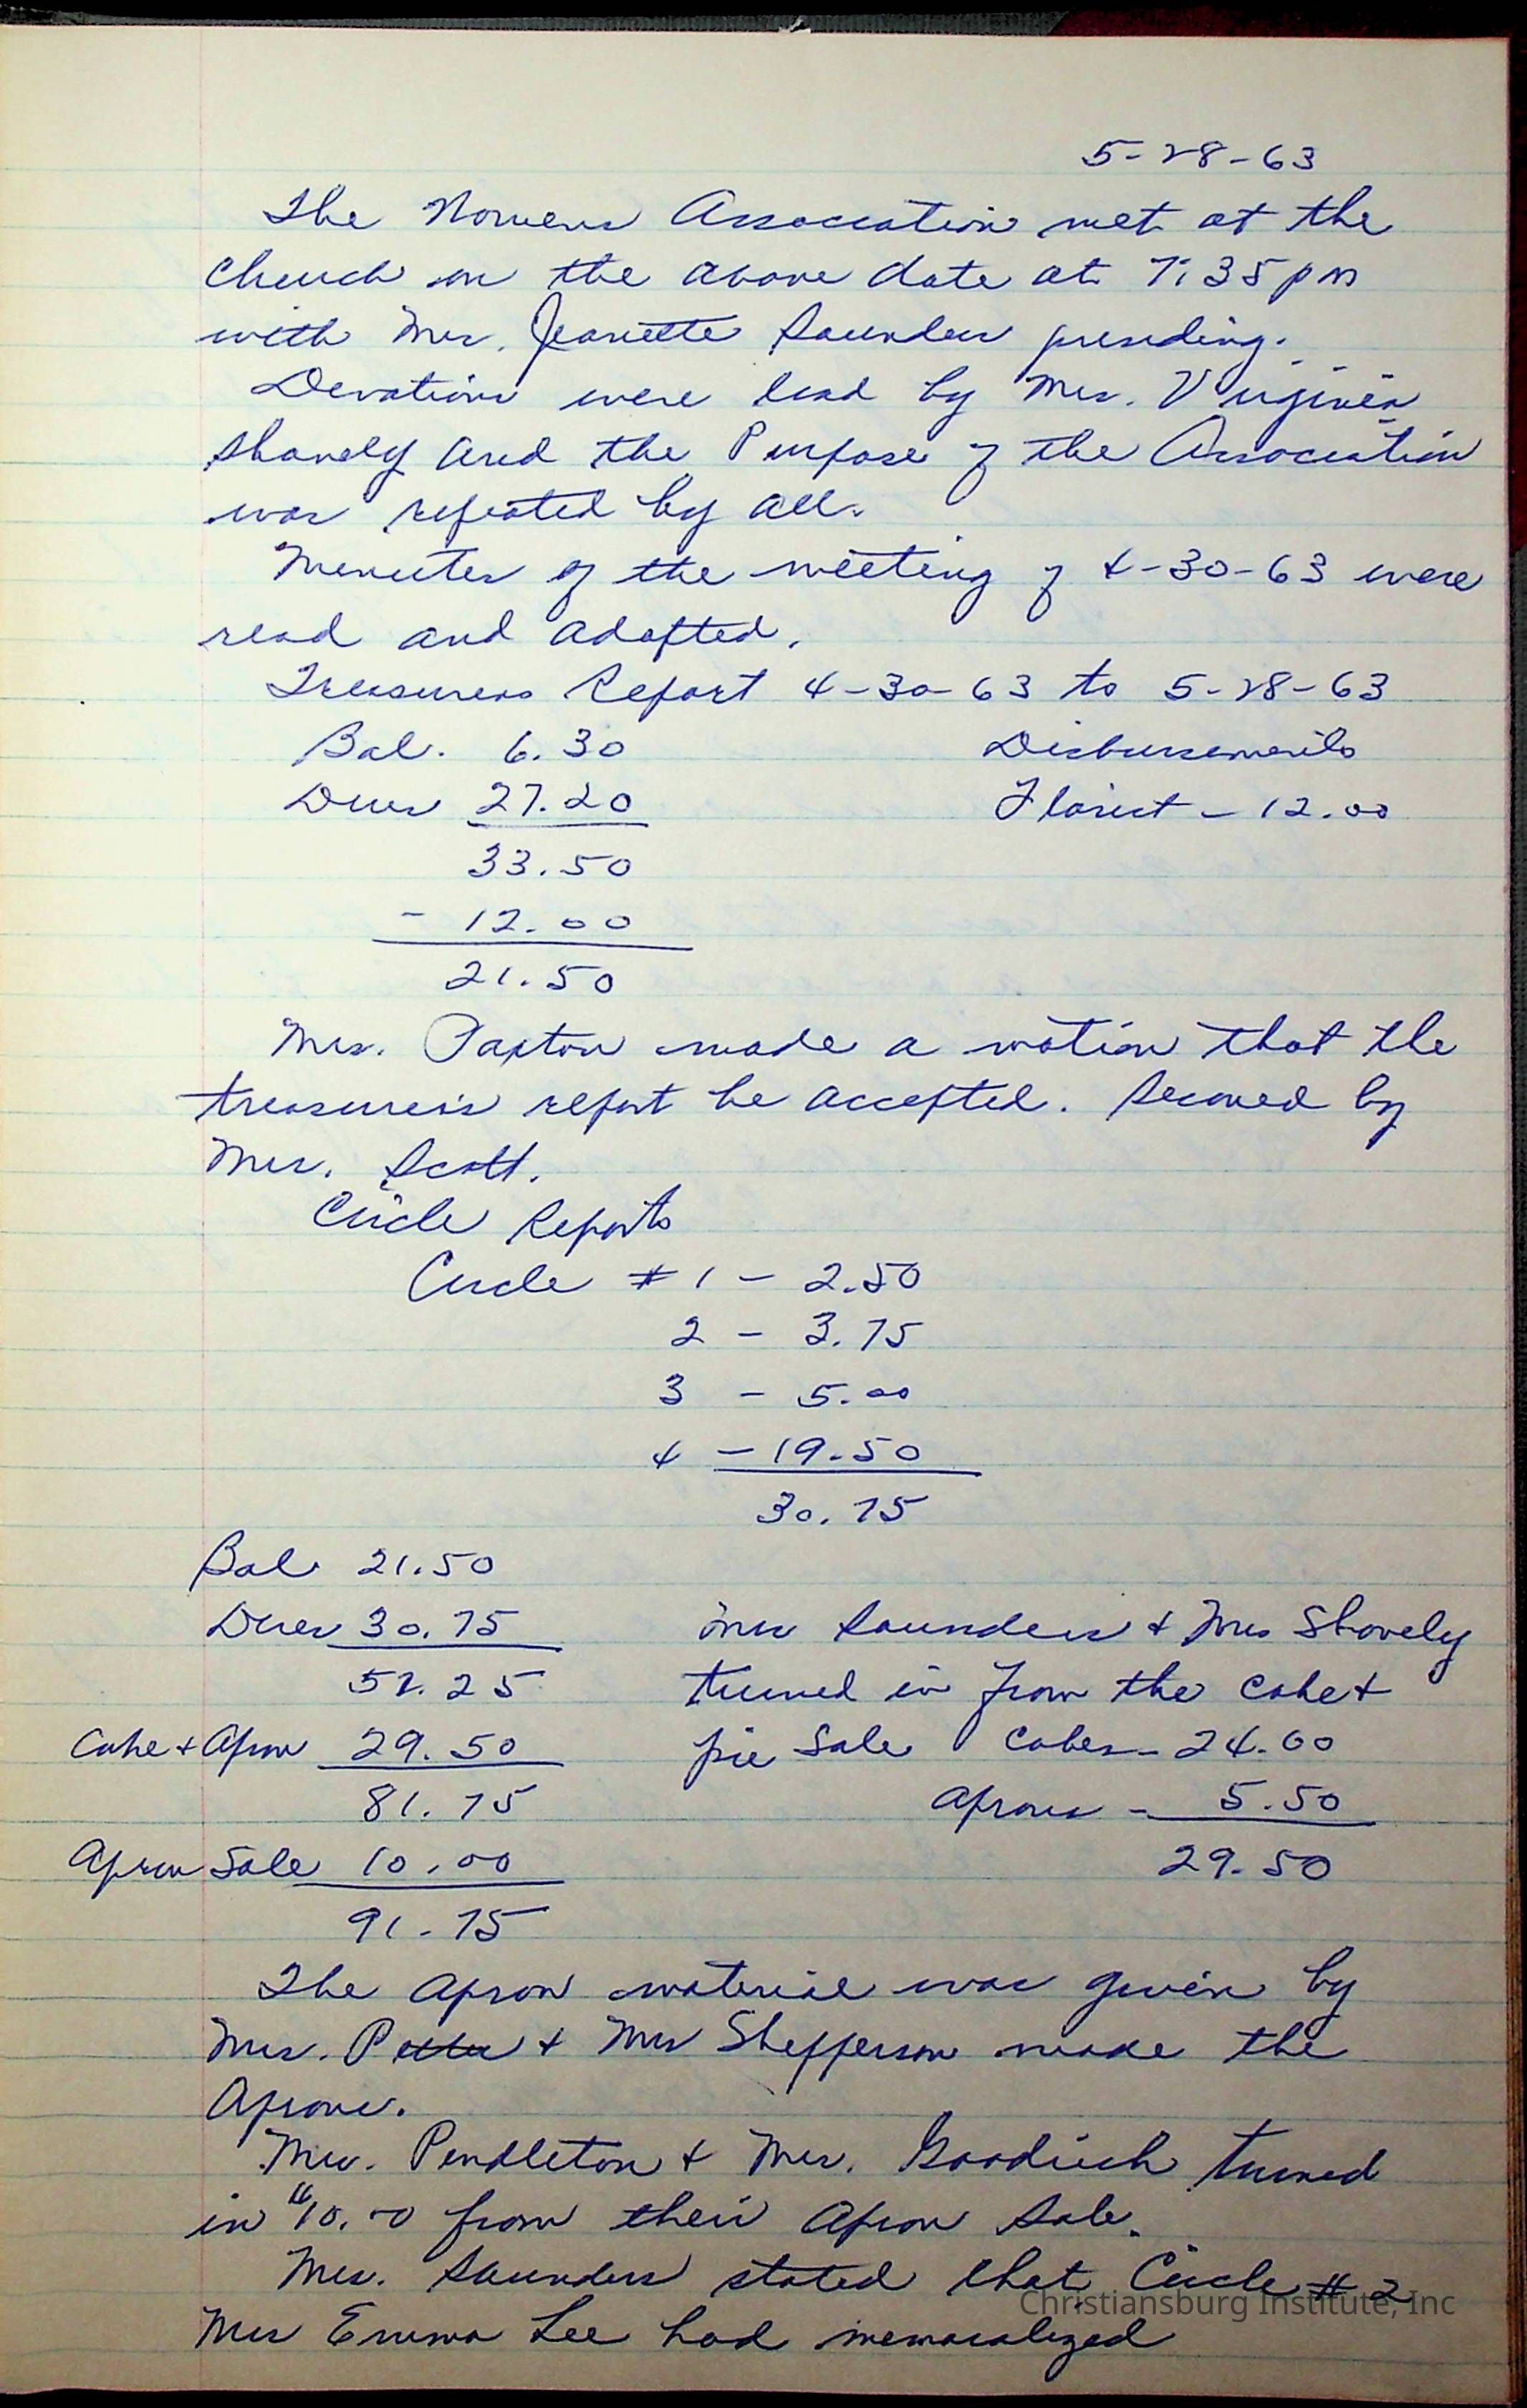 5-28-63
The Womens Association met at the
Church on the above date at 7:35 pm
with Mrs. Jeanette Saunders presiding.
Devotions were lead by Mrs. Virginia
Shavely and the Purpose of the Association
was repeated by all.
Minutes of the meeting of 4-30-63 were
read and adopted.
Treasurers Report 4-30-63 to 5-28-63
Bal. 6.30 Disbursements
Dues 27.20 Florist - 12.00
33.50
- 12.00
21.50
Mrs. Paxton made a motion that the
treasurer's report be accepted. Seconed by
Mrs. Scott.
Circle Reports
Circle # 1 - 2.50
2 - 3.75
3 - 5.00
4 - 19.50
30.75
Bal 21.50
Dues 30.75 Mrs Saunders & Mrs Shovely
52.25 turned in from the cake &
Cake & Apron 29.50 pie Sale Cakes - 24.00
81.75 Aprons - 5.50
Apron Sale 10.00 29.50
91.75
The Apron material was given by
Mrs. & Mrs Shepperson make the
Aprons.
Mrs. Pendleton & Mrs. Goodrich turned
in "10.00 from their Apron Sale.
Mrs. Saunders stated that Circle # 2
Mrs Emma Lee had memoralized
Christiansburg Institute, Inc